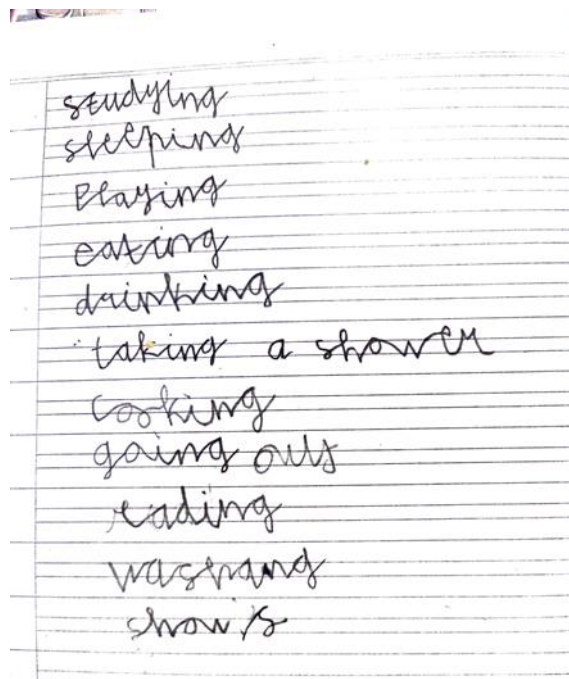 studying
sleeping
Playing
eating
drinking
taking a shower
cooking
going out
reading
washang
show